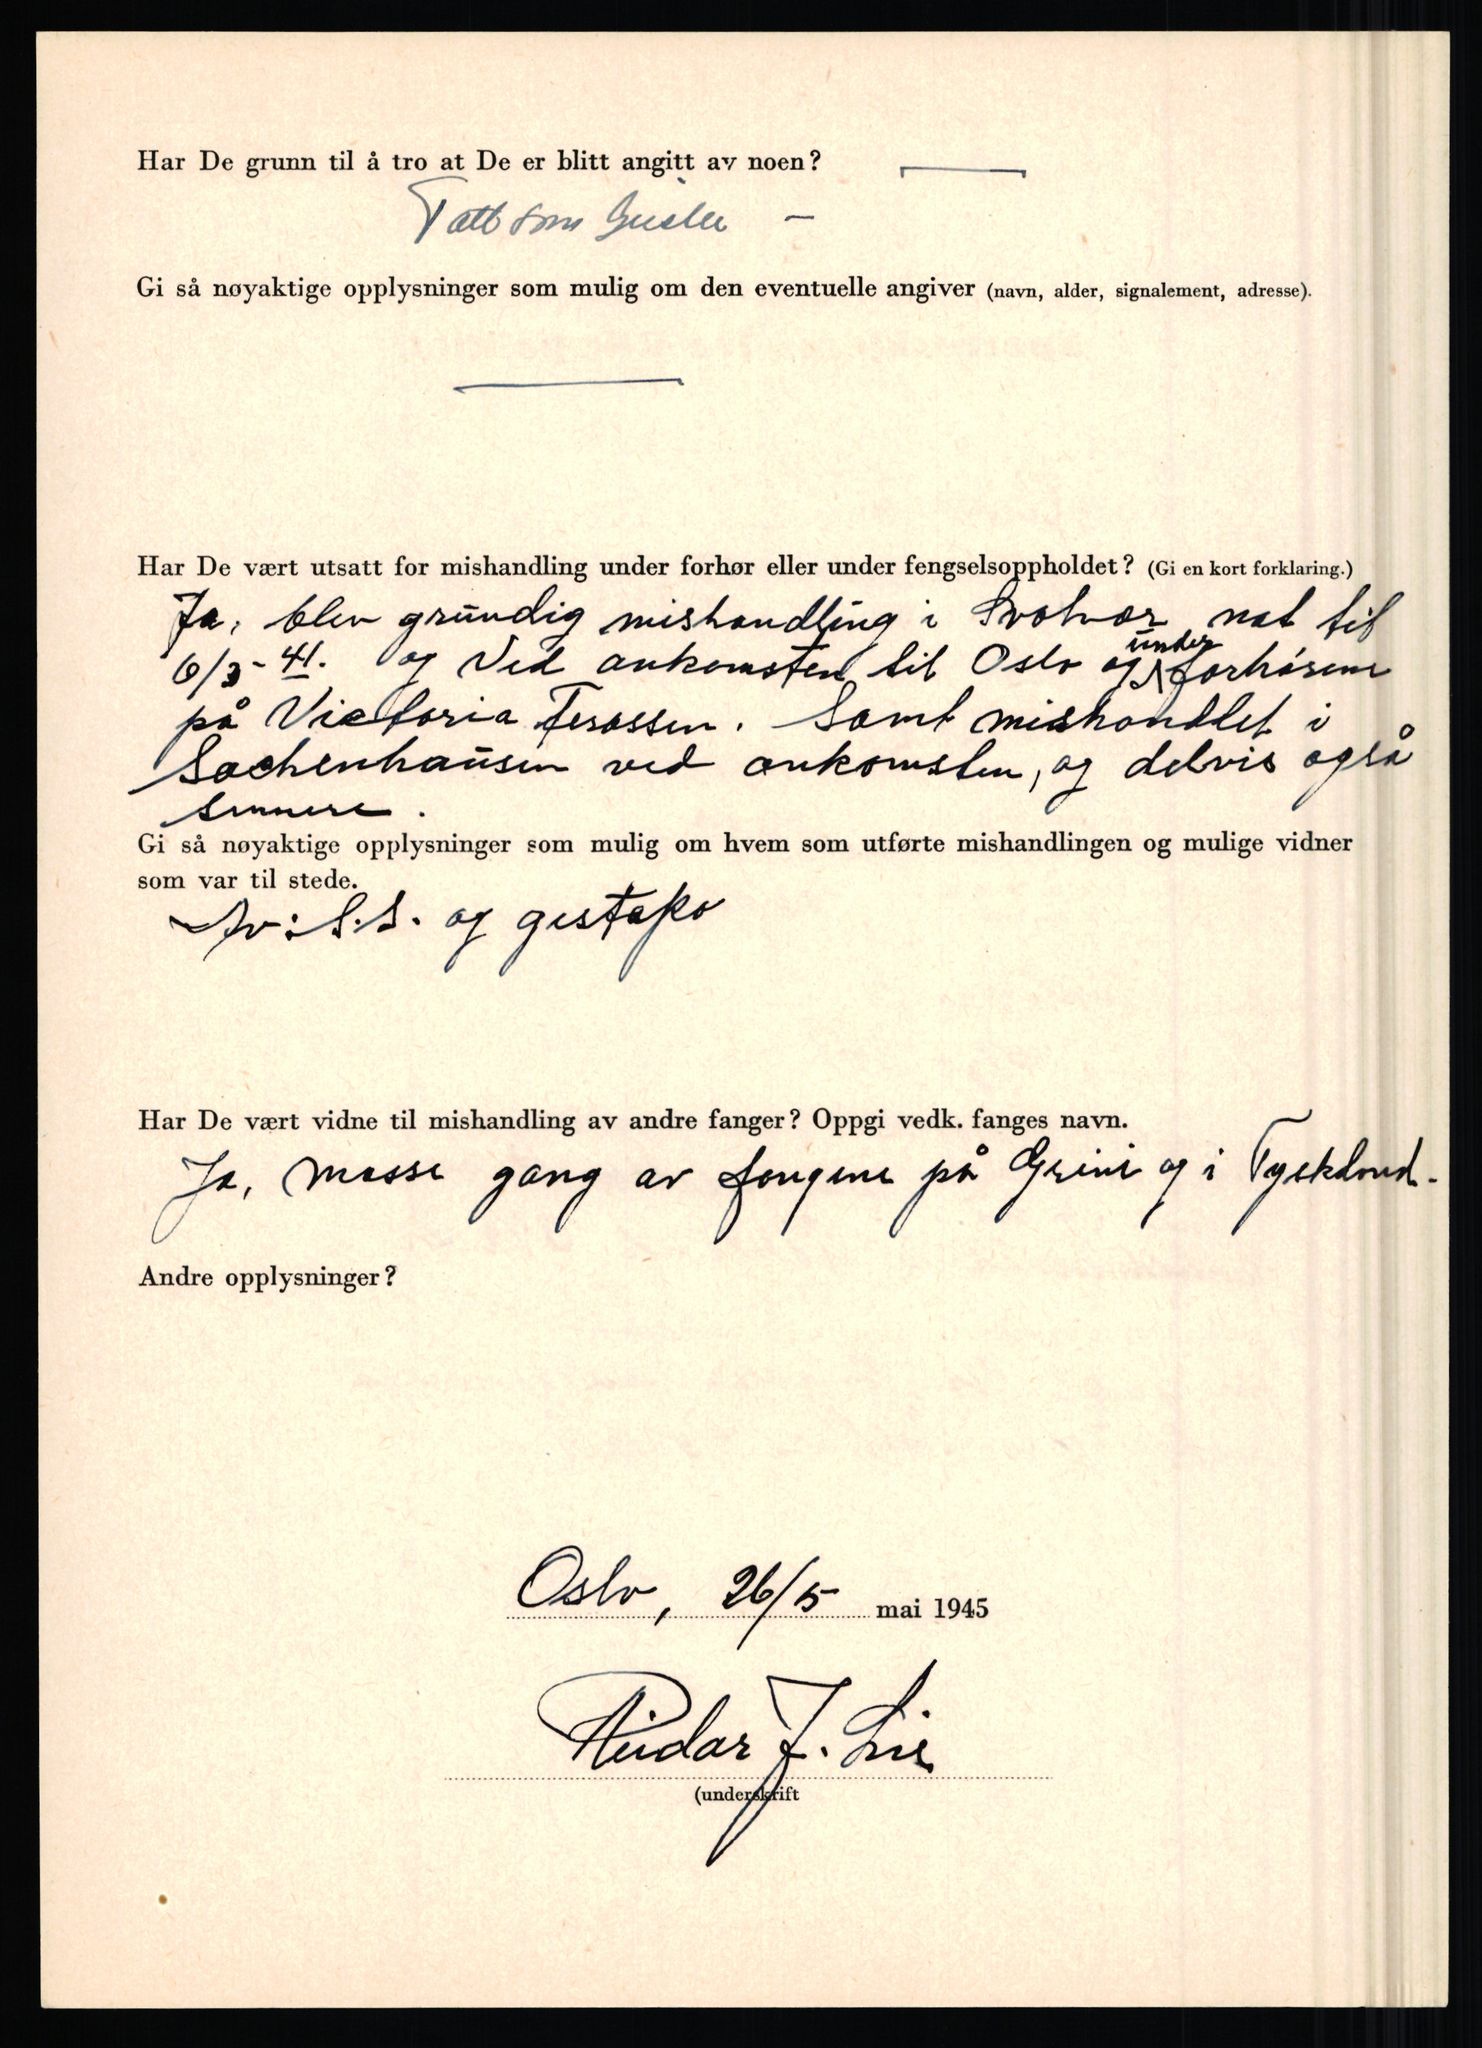 Har De grunn til å tro at De er blitt angitt av noen?
Tatt som Gisler –
Gi så nøyaktige opplysninger som mulig om den eventuelle angiver (navn, alder, signalement, adresse).
Har De vært utsatt for mishandling under forhør eller under fengselsoppholdet? (Gi en kort forklaring.)
Ja, blev grundig mishandling i Svolvær nat til
6/3-41. og Ved ankomsten til Oslo og under forhørene
på Victoria Terassen. Samt mishandlet i
Sachenhausen ved ankomsten, og delvis også
sennere.
Gi så nøyaktige opplysninger som mulig om hvem som utførte mishandlingen og mulige vidner
som var til stede.
Av: S.S. og gestapo
Har De vært vidne til mishandling av andre fanger? Oppgi vedk. fanges navn.
Ja, masse gang av fangene på Grini og i Tyskland.
Andre opplysninger?
Oslo, 26/5 mai 1945
Reidar J. Lie
(underskrift